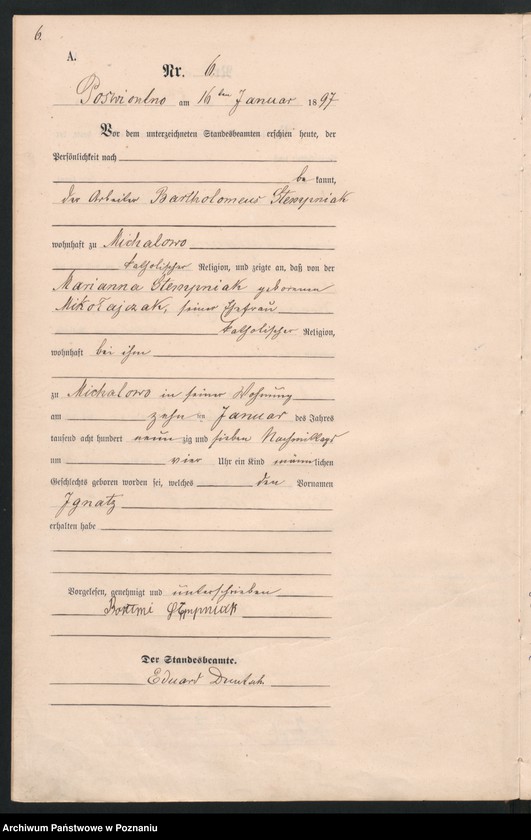 6.
A.
Nr. 6.
am 16ten Januar 1897
Vor dem unterzeichneten Standesbeamten erschien heute, der
Persönlichkeit nach
bekannt,
der Arbeiter Bartholomeus Stempniak
wohnhaft zu Michalowo
katholischer Religion, und zeigte an, daß von der
Marianna Stempniak geborenen
Mikołajczak, seiner Ehefrau
katholischer Religion,
wohnhaft bei ihm
zu Michalowo in seiner Wohnung
am zehn ten Januar des Jahres
tausend acht hundert neunzig und sieben Nachmittags
um vier Uhr ein Kind männlichen
Geschlechts geboren worden sei, welches den Vornamen
Ignatz
erhalten habe
Vorgelesen, genehmigt und unterschrieben
Der Standesbeamte.
Eduard
Archiwum Państwowe w Poznaniu